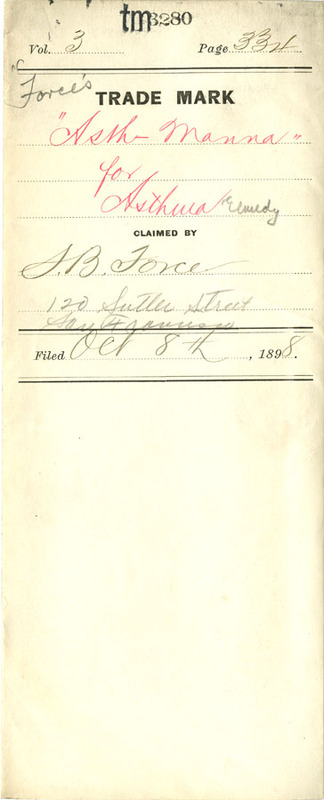 tm3280
Vol. 3 Page 334
"Force's
TRADE MARK
"Asth-Manna"
for
Asthma Remedy
CLAIMED BY
J. B. Force
120 Sutter Street
San Francisco
Filed Oct 8th, 1898.